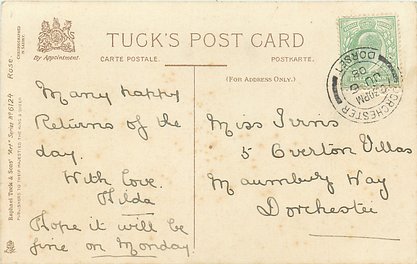 By Appointment.
TUCK'S POST CARD
CARTE POSTALE.
POSTKARTE.
(FOR ADDRESS ONLY.)
Many happy
Returns of the
day.
With love.
Hilda
Hope it will be
fine on Monday.
Miss Irvins
5 Overton Villas
Maumbury Way
Dorchester
DORCHESTER
DORSET
Raphael Tuck & Sons' "Art" Series No 6124 Rose.
PUBLISHERS TO THEIR MAJESTIES THE KING & QUEEN.